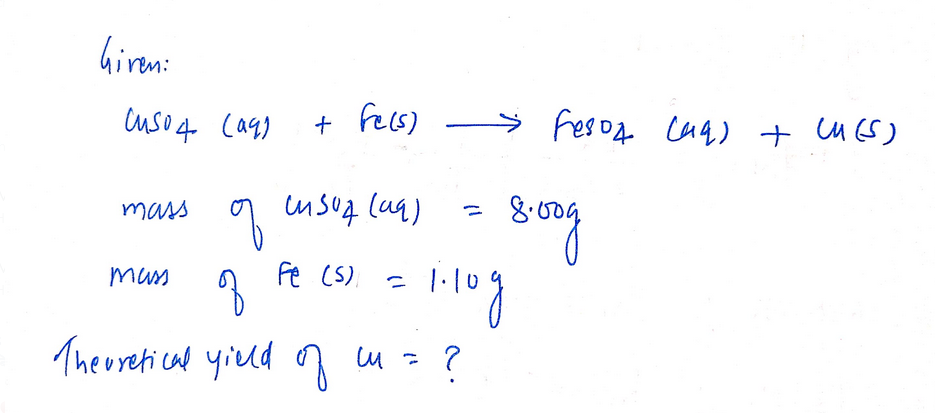 Given:
CuSO4 (aq) + Fe(s) ⟶ FeSO4 (aq) + Cu(s)
mass of CuSO4 (aq) = 8.00g
mass of Fe (s) = 1.10g
Theoretical yield of Cu = ?